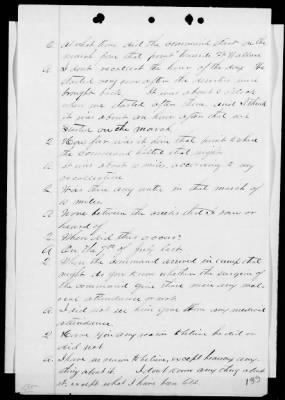 Q. At what time did the command start on the
march from that point towards Ft Wallace
A. I don't recollect the hour of the day. We
started very soon after the deserters were
brought back. It was about o'clock
when we started after them, and I think
it was about an hour after that we
started on the march
Q. How far was it from that point to where
the command halted that night
A. It was about 10 miles, according to my
recollection
Q. Was there any water in that march of
10 miles
A. None between the creeks that I saw or
heard of
Q. When did this occur?
A. On the 7th of July last.
Q. When the command arrived in camp that
night do you know whether the surgeon of
the command gave these men any med-
ical attendance or not
A. I did not see him give them any medical
attendance
Q. Have you any reason to believe he did or
did not
A. I have no reason to believe, except hearing any-
thing about it. I don't know any thing about
it, except what I have been told.